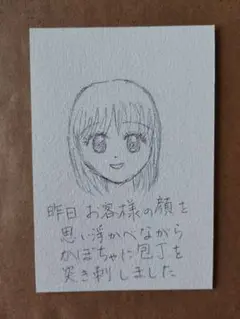 昨日 お客様の顔を
思い浮かべながら
かぼちゃに包丁を
突き刺しました